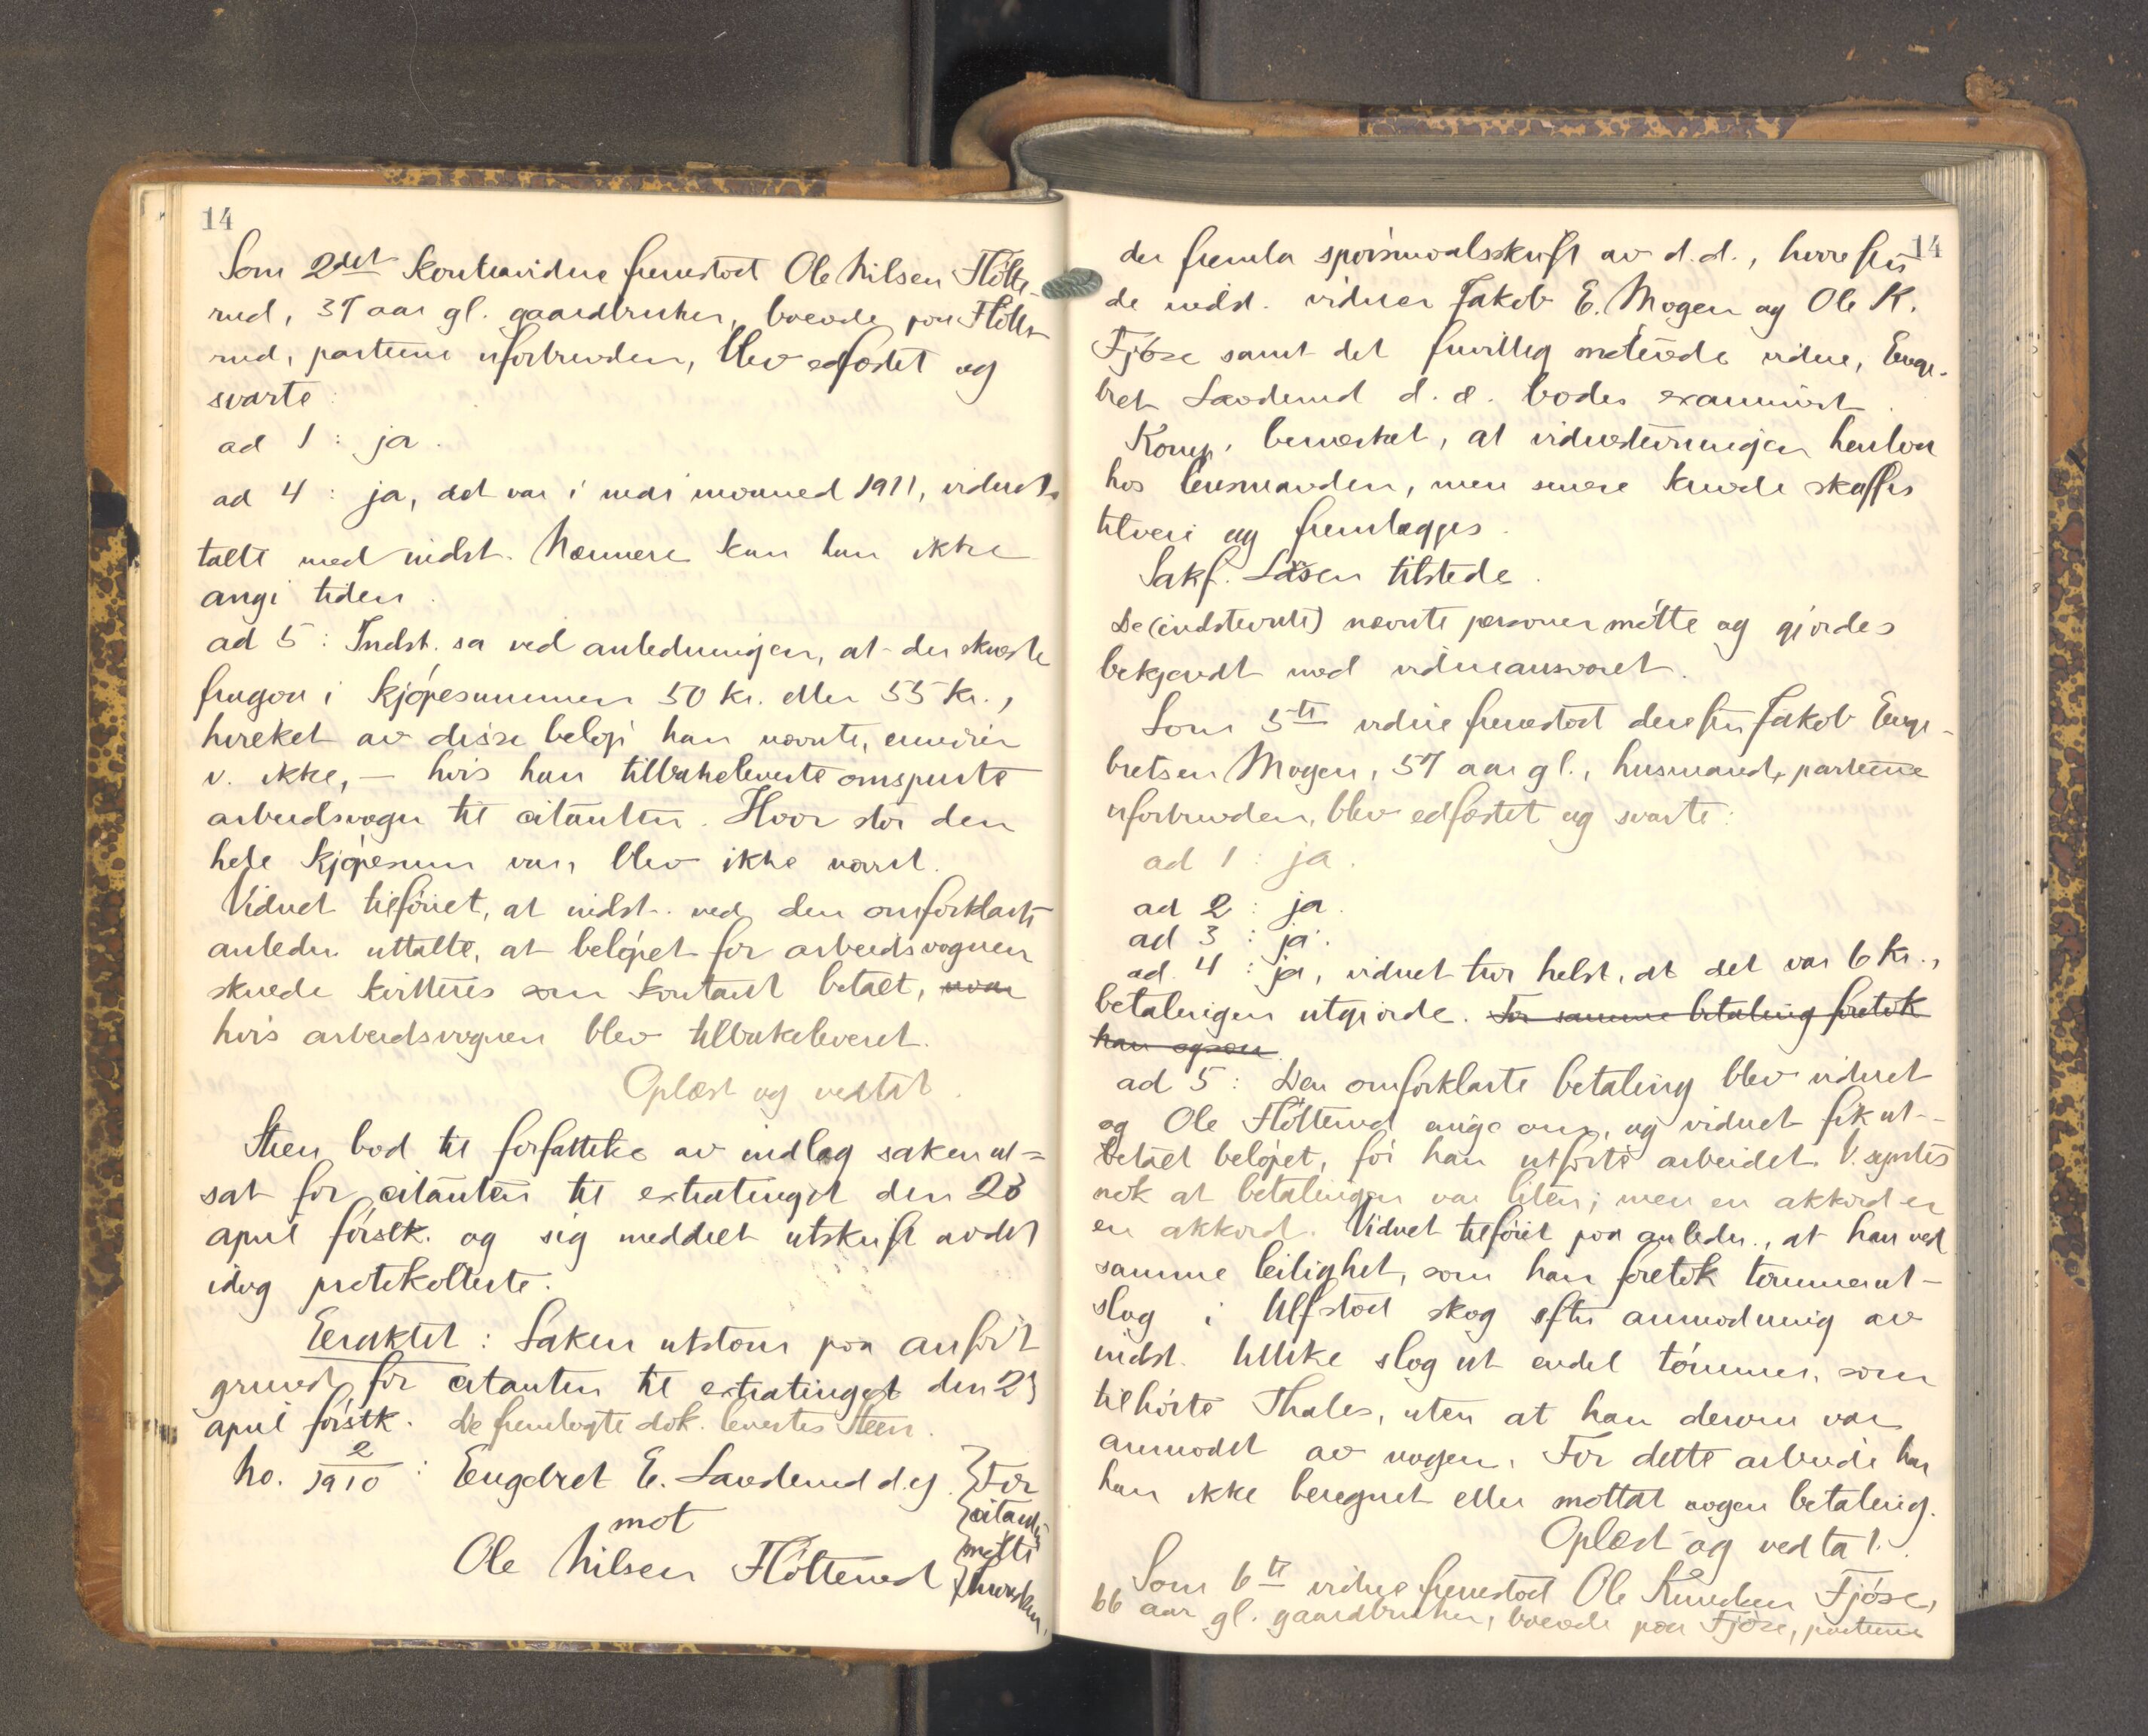 14
Som 2det kontravidne fremstod Ole Nilsen Flötte-
rud, 37 aar gl. gaardbruker, boende paa Flötte-
rud, parterne uforbunden, blev edfæstet og
svarte:
ad 1: ja.
ad 4: ja, det var i mai maaned 1911, vidnet
talte med indst. Nærmere kan han ikke
angi tiden.
ad 5: Indst. sa ved anledningen, at der skulde
fragaa i kjöpesummen 50 kr. eller 55 kr.,
hvilket av disse belöp han nævnte, erindrer
v. ikke, — hvis han tilbakeleverte omspurte
arbeidsvogn til citanten. Hvor stor den
hele kjöpesum var, blev ikke nævnt.
Vidnet tilföiet, at indst. ved den omforklarte
anledn. uttalte, at belöpet for arbeidsvognen
skulde kvitteres som kontant betalt,
hvis arbeidsvognen blev tilbakeleveret.
Oplæst og vedtat.
Steen bad til forfattelse av indlæg saken ut=
sat for citanten til extratinget den 23
april förstk. og sig meddelt utskrift av det
idag protokollerte.
Eragtet: Saken utstaar paa anfört
grund for citanten til extratinget den 23
april förstk. De fremlagte dok. levertes Steen.
No. 2/1910: Engebret E. Lavderud d.y.
mot
Ole Nilsen Flötterud
For
citanten
mötte
14
der fremla spörsmaalsskrift av d.d., hvorefter
de indst. vidner Jakob E. Mogen og Ole K.
Fjöse samt det frivillig mötende vidne, Enge-
bret Lavderud d. æ. bades examinert.
Komp. bemerket, at vidnestevningen henlaa
hos lensmanden, men senere kunde skaffes
tilveie og fremlægges.
Sakf. Låsen tilstede.
De (indstevnte) nævnte personer mötte og gjordes
bekjendt med vidneansvaret.
Som 5te vidne fremstod derefter Jakob Enge-
bretsen Mogen, 57 aar gl., husmand, parterne
uforbunden, blev edfæstet og svarte:
ad 1: ja.
ad 2: ja.
ad 3: ja.
ad 4: ja, vidnet tror helst, at det var 6 kr.,
betalingen utgjorde. For samme betaling foretok
han ogsaa
ad 5: Den omforklarte betaling blev vidnet
og Ole Flötterud enige om, og vidnet fik ut-
betalt belöpet, för han utförte arbeidet. V. syntes
nok at betalingen var liten; men en akkord er
en akkord. Vidnet tilföiet paa anledn., at han ved
samme leilighet, som han foretok tömmerut-
slag i Ulfstad skog efter anmodning av
indst. tillike slog ut endel tömmer, som
tilhörte Thales, uten at han derom var
anmodet av nogen. For dette arbeide har
han ikke beregnet eller mottat nogen betaling.
Oplæst og vedtat.
Som 6te vidne fremstod Ole Knudsen Fjöse,
66 aar gl. gaardbruker, boende paa Fjöse, parterne